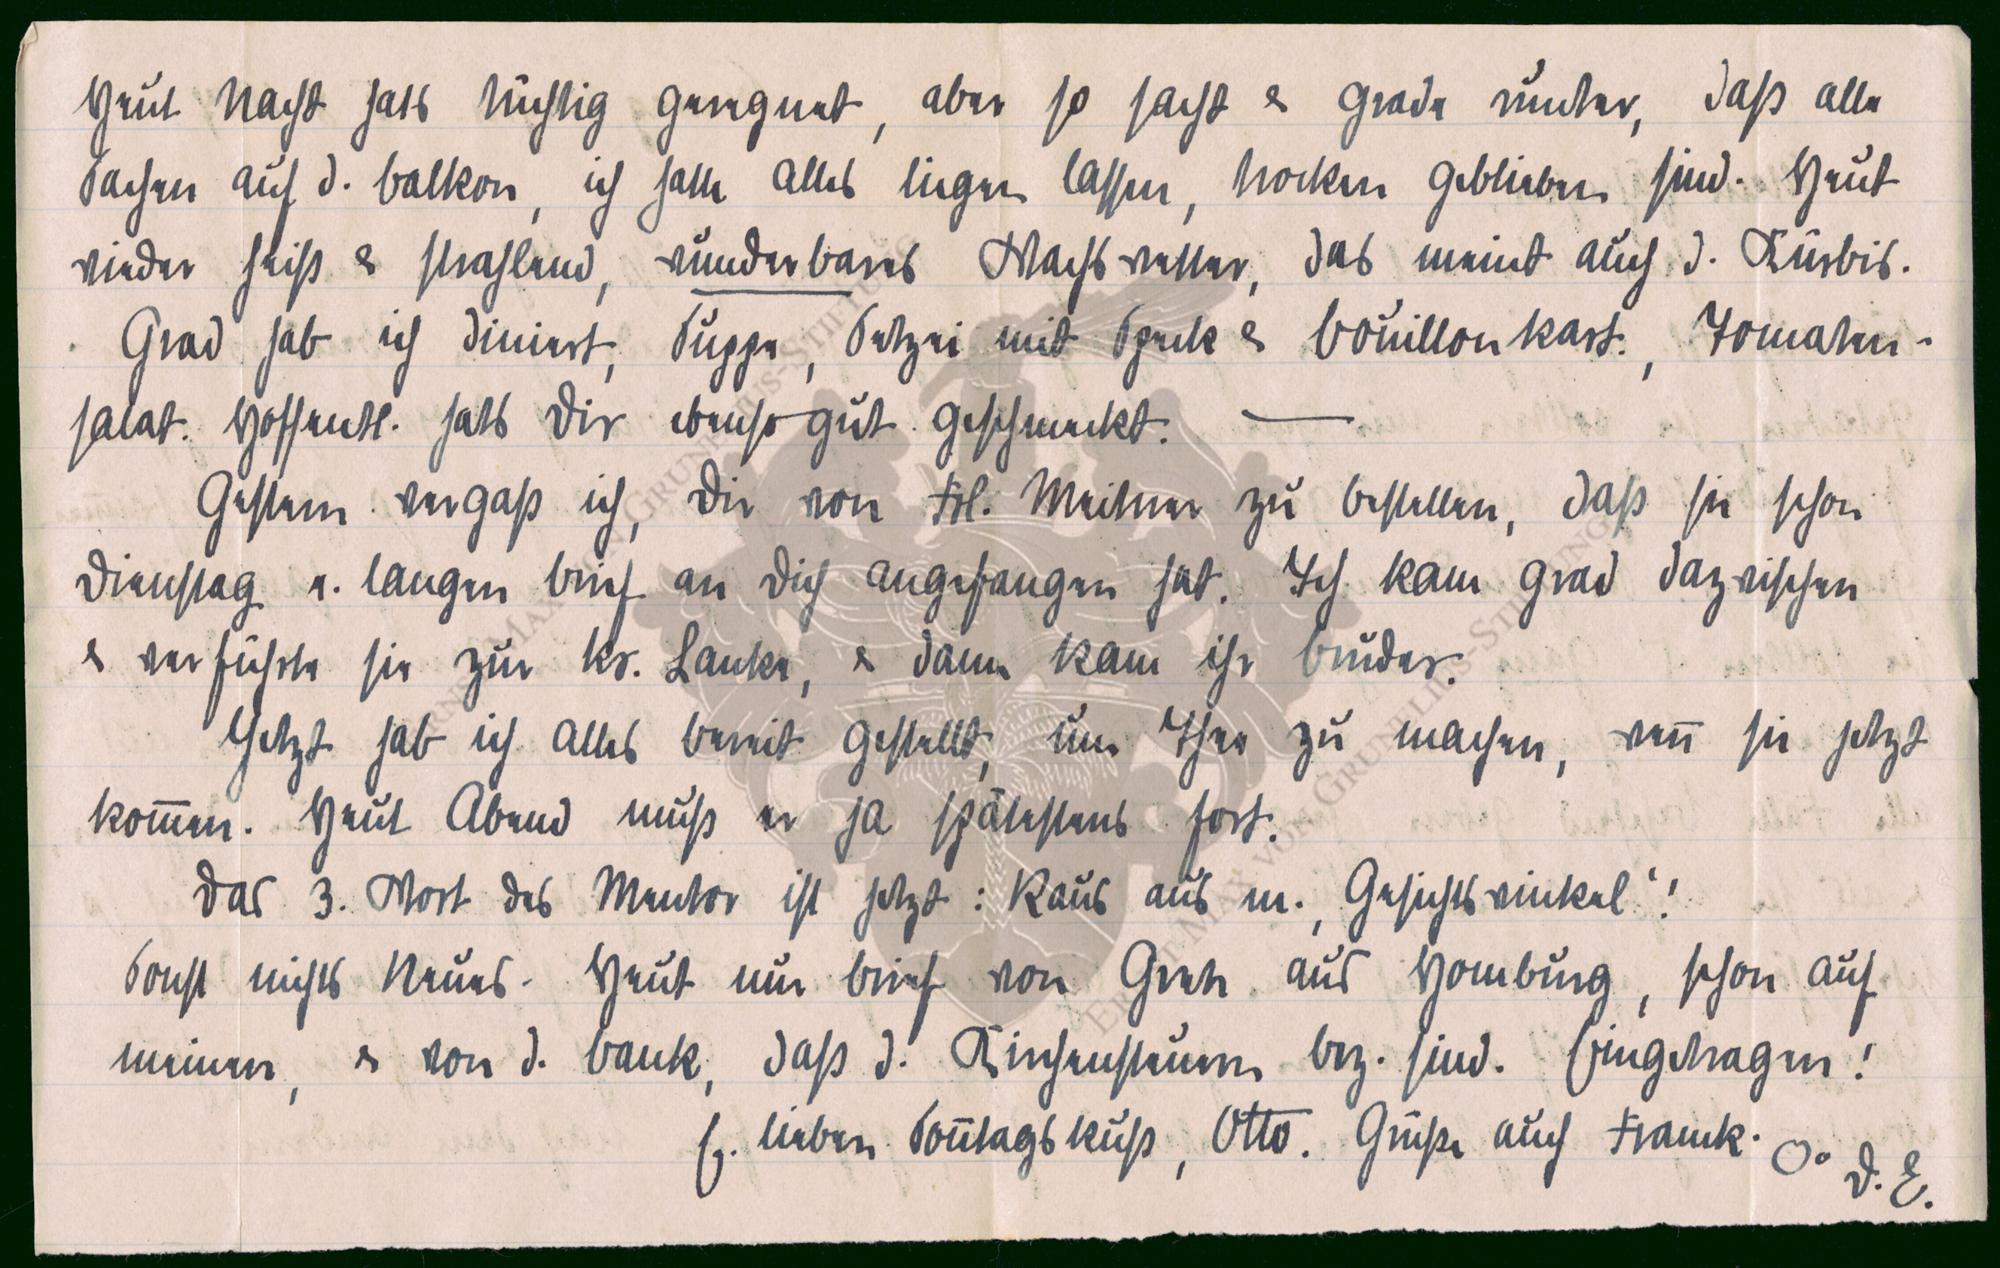 Heut Nacht hats tüchtig geregnet, aber so sacht & grade runter, daß alle
Sachen auf d. Balkon, ich hatte alles liegen lassen, trocken geblieben sind. Heut
wieder heiß & strahlend, wunderbares Wachswetter, das meint auch d. Kürbis.
Grad hab ich diniert, Suppe, Setzei mit Speck & Bouillonkart., Tomaten-
salat. Hoffentl. hats Dir ebenso gut geschmeckt. —
Gestern vergaß ich, Dir von Frl. Meitner zu bestellen, daß sie schon
Dienstag e. langen Brief an Dich angefangen hat. Ich kam grad dazwischen
& verführte sie zur Kr. Lanke, & dann kam ihr Bruder.
Jetzt hab ich alles bereit gestellt, um Thee zu machen, weñ sie jetzt
kom̄en. Heut Abend muß er ja spätestens fort.
Das 3. Wort des Mentor ist jetzt: Raus aus m. „Gesichtswinkel“!
Sonst nichts Neues. Heut nur Brief von Grete aus Homburg, schon auf
meinen, & von d. Bank, daß d. Kirchensteuern bez. sind. Eingetragen!
E. lieben Soñtagskuß, Otto. Grüße auch Franck.
D. E.
ERNST MAX VON GRUNELIUS-STIFTUNG
ERNST MAX VON GRUNELIUS-STIFTUNG